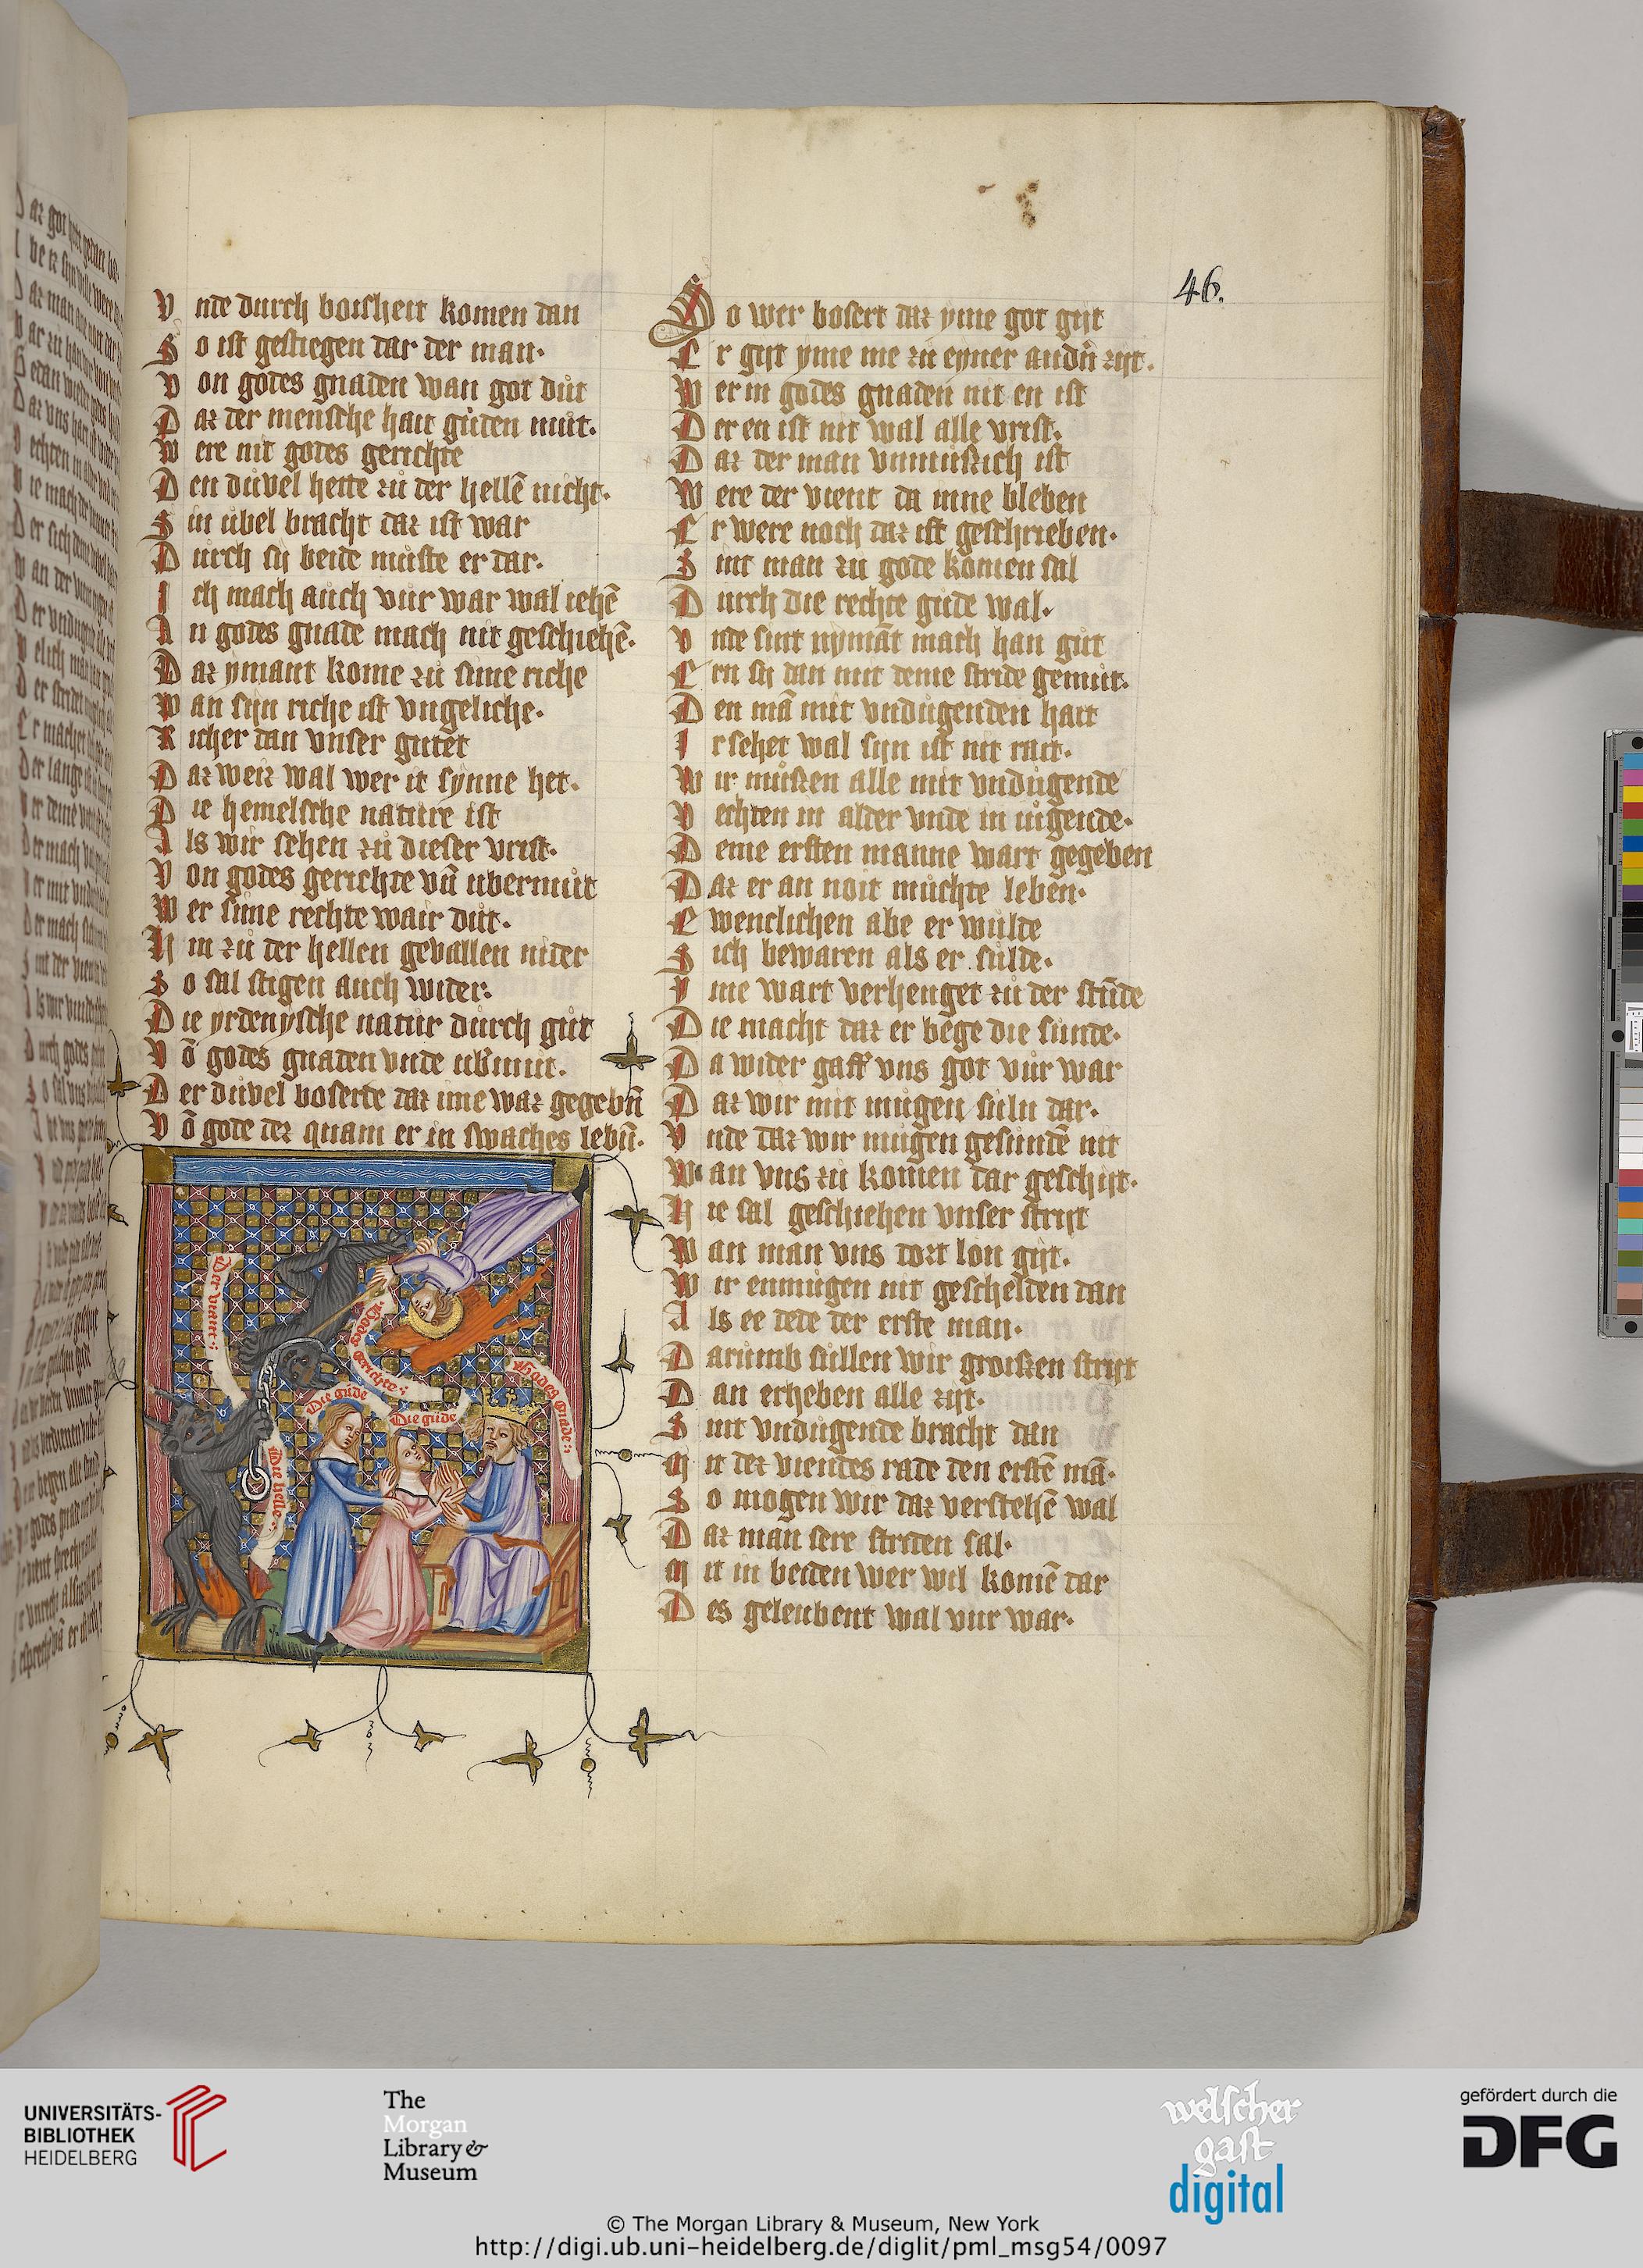 46.
Vnde durch boisheit komen dan
So ist gestiegen dar der man.
Von godes gnaden wan got důt
Daz der mensche hait gůden můt.
Were nit godes gerichte
Den důvel hette zů der hellē nicht.
Sin ůbel bracht daz ist war
Durch sij beide můste er dar.
Ich mach auch vůr war wal iehē
An godes gnade mach nit geschiehē.
Daz ymant kome zů sime riche
Wan sijn riche ist vngeliche.
Richer dan vnser gutet
Daz weiz wal wer it synne het.
Die hemelsche nature ist
Als wir sehen zů dieser vrist.
Von godes gerichte vn̄ ubermůt
Wer sime rechte wair důt.
Hin zů der hellen gevallen nider
So sal stigen auch wider.
Die yrdenysche natůr durch gůt
Vō godes gnaden vnde ubͤmůt.
Der důvel boserte daz ime waz gegebn̄
Vō gode dez quam er in swaches lebn̄.
Der vient
Godes gerichte
Godes gnade
Die gůde
Die gůde
Die helle
So wer bosert daz yme got gijt
Er gijt yme me zů eyner andn̄ zijt.
Wer in godes gnaden nit en ist
Der en ist nit wal alle vrist.
Daz der man vnmůszich ist
Were der vient da inne bleben
Er were noch daz ist geschrieben.
Sint man zů gode komen sal
Durch die rechte gůde wal.
Vnde sint nymāt mach han gůt
Ern sij dan mit deme stride gemůt.
Den mā mit vndůgenden hait
Ir sehet wal sijn ist nit rait.
Wir můszen alle mit vndůgende
Vechten in alder vnde in iůgende.
Deme ersten manne wart gegeben
Daz er an noit můchte leben.
Ewenclichen abe er wůlde
Sich bewaren als er sůlde.
Yme wart verhenget zů der stůnde
Die macht daz er bege die sůnde.
Da wider gaff vns got vůr war
Daz wir mit můgen sůln dar.
Vnde daz wir můgen gesundē nit
Wan vns zů komen dar geschijt.
Hie sal geschiehen vnser strijt
Wan man vns dort lon gijt.
Wir enmůgen nit gescheiden dan
Als ee dede der erste man.
Darumb sůllen wir groiszen strijt
Dan erheben alle zijt.
Sint vndůgende bracht dan
Mit dez viendes rade den erstē mā.
So mogen wir daz verstehē wal
Daz man sere striten sal.
Mit in beiden wer wil komē dar
Des geleubent wal vur war.
UNIVERSITÄTS-
BIBLIOTHEK
HEIDELBERG
The
Morgan
Library &
Museum
welscher
gast
digital
gefördert durch die
DFG
© The Morgan Library & Museum, New York
http://digi.ub.uni-heidelberg.de/diglit/pml_msg54/0097